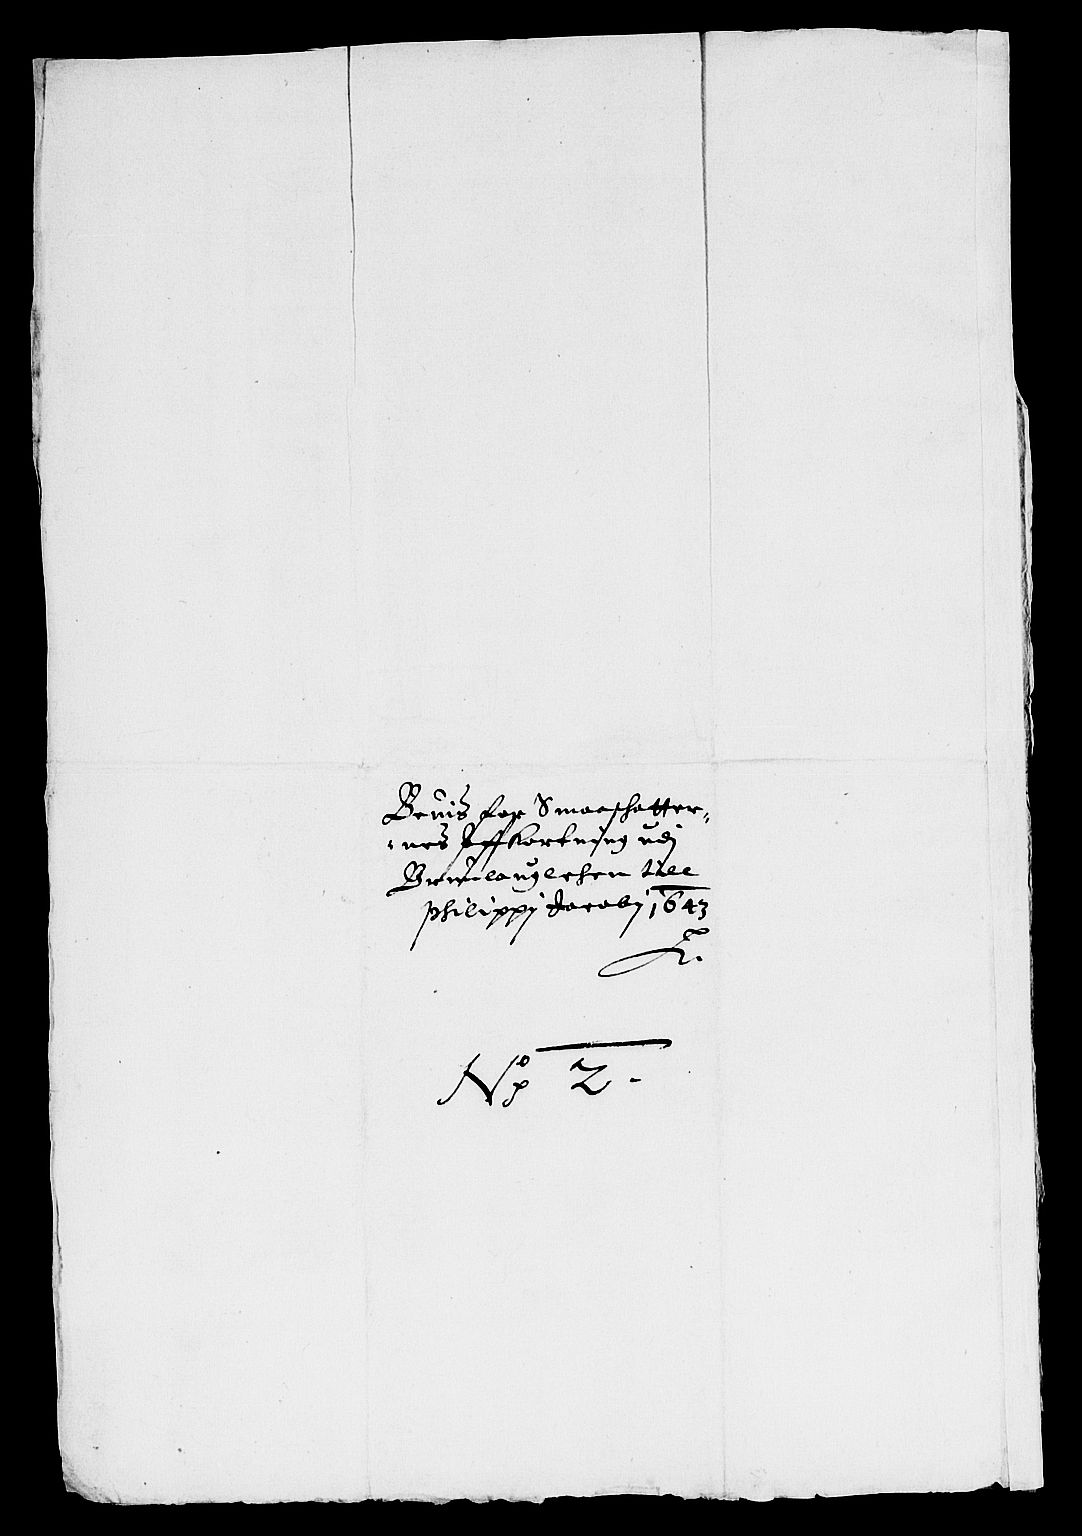 Beuis for Smaaschatter,,
,,nes Affkortning udj
Brunlauglehen till
Philippj Jacobj 1643
No 2.